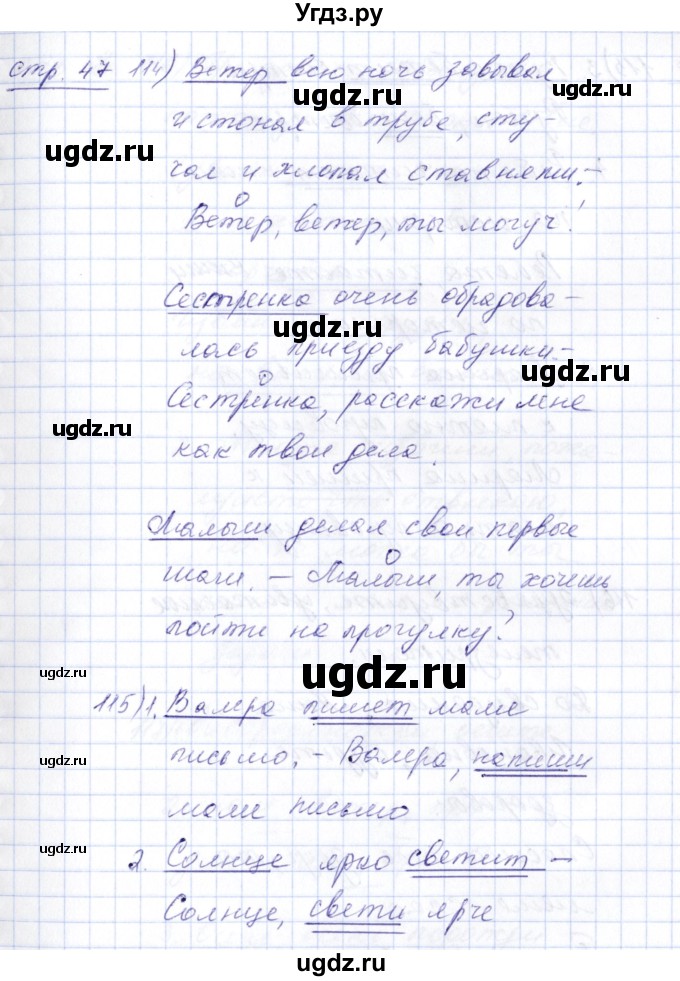 Угдз.ру
стр. 47 114) Ветер всю ночь завывал
ugdz.ru
и стонал в трубе, сту-
ugdz.ru
чал и хлопал ставнями. –
Ветер, ветер, ты могуч!
Сестренка очень обрадова-
ugdz.ru
лась приезду бабушки –
Сестренка, расскажи мне
ugdz.ru
как твои дела.
Малыш делал свои первые
шаги. – Малыш, ты хочешь
пойти на прогулку?
ugdz.ru
ugdz.ru
115) 1. Валера пишет маме
письмо. – Валера, напиши
ugdz.ru
маме письмо
ugdz.ru
2. Солнце ярко светит –
Солнце, свети ярче
ugdz.ru